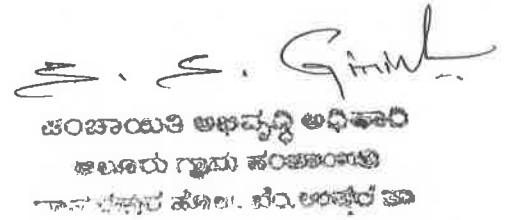 S. S. Girish
ಪಂಚಾಯಿತಿ ಅಭಿವೃದ್ಧಿ ಅಧಿಕಾರಿ
ಆಲೂರು ಗ್ರಾಮ ಪಂಚಾಯಿತಿ
ದಾಸನಪುರ ಹೋಬಳಿ. ಬೆಂ. ಉತ್ತರ ತಾ